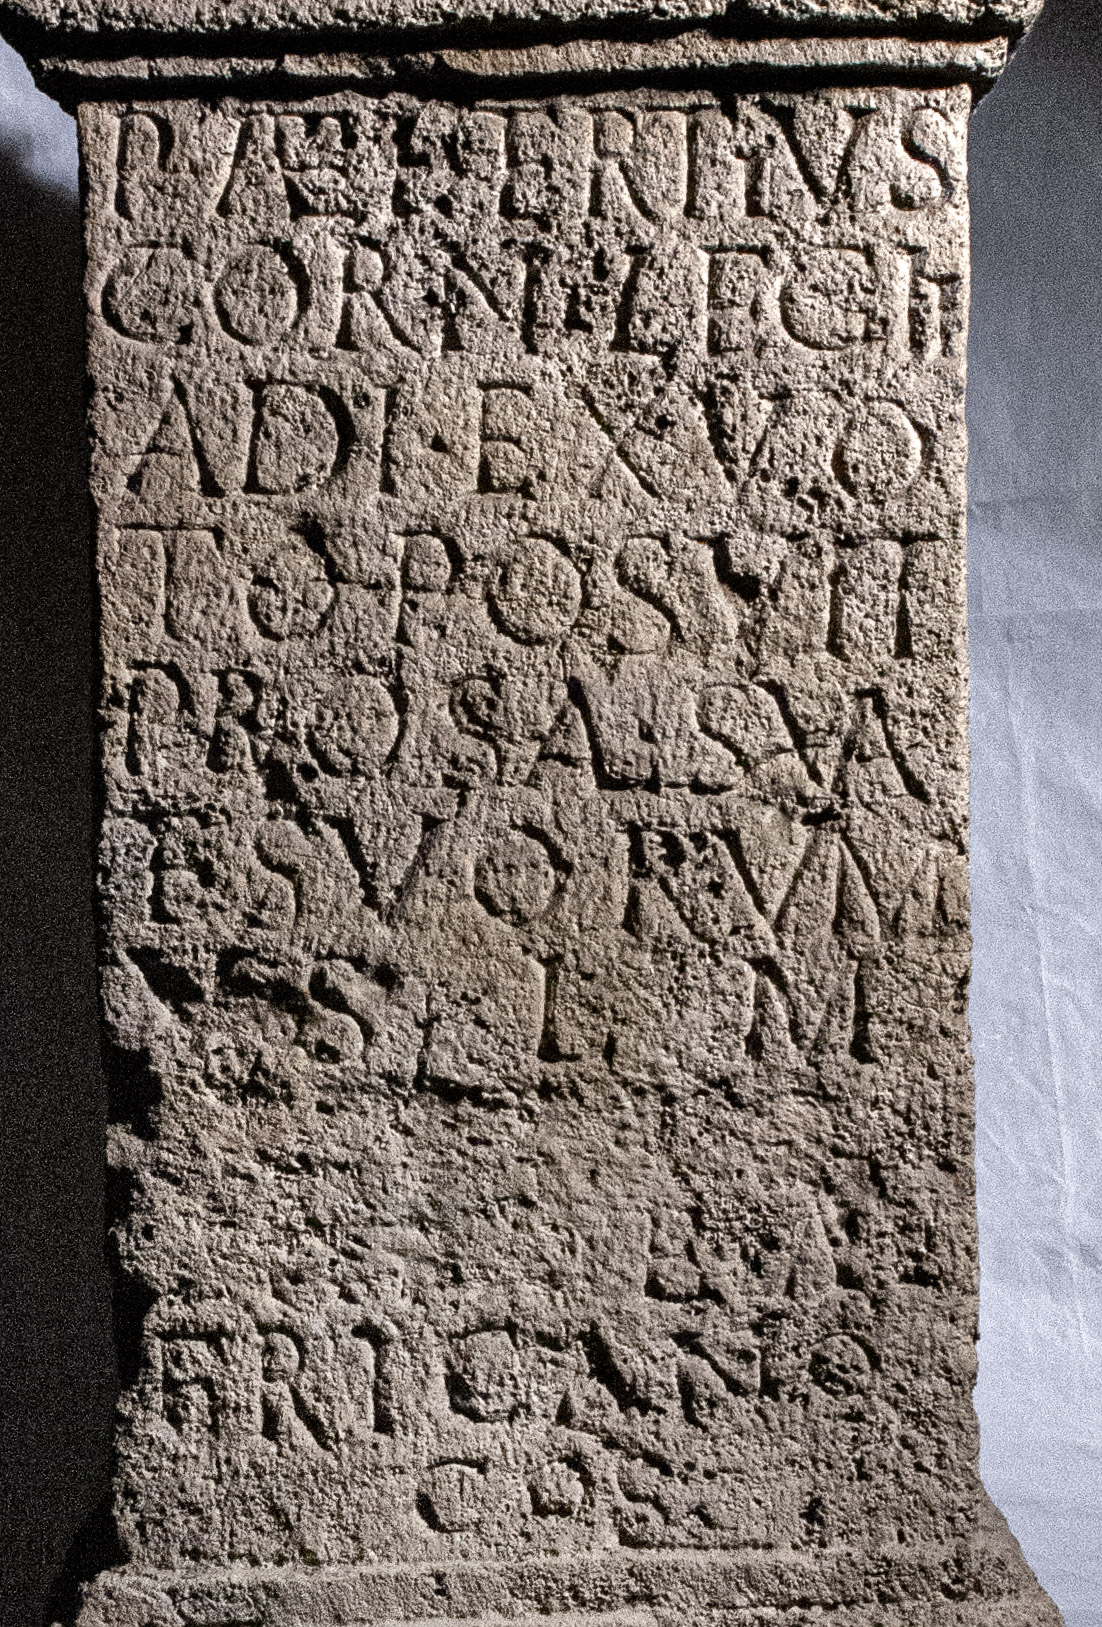 P AEL TERTIVS
CORN LEG II
ADI EX VO
TO POSVIT
PRO SAL SVA
E SVORVM
V S L M
A
FRICANO
COS